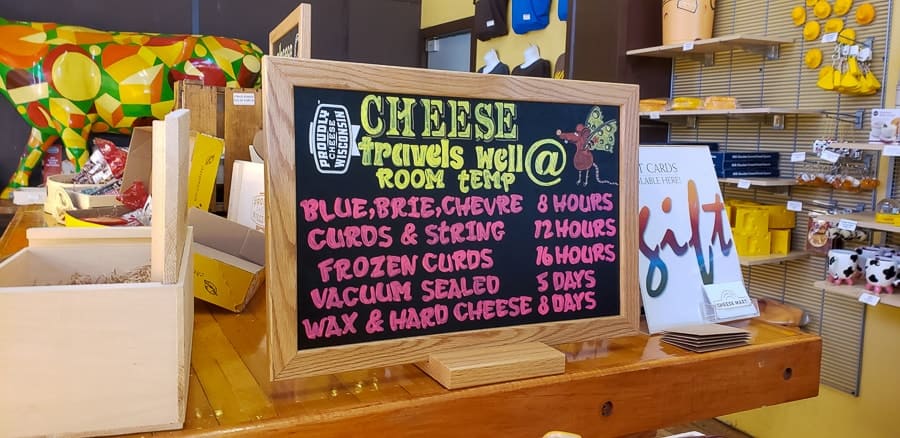 PROUDLY
WISCONSIN
CHEESE
CHEESE
travels well @
ROOM tEMP
BLUE, BRIE, CHEVRE 8 HOURS
CURDS & StRING 12 HOURS
FROZEN CURDS 16 HOURS
VACUUM SEALED 5 DAYS
WAX & HARD CHEESE 8 DAYS
T CARDS
ILABLE HERE!
gift
CHEESE MART